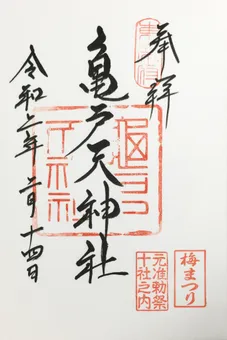 奉拝
亀戸天神社
令和二年二月二十四日
梅まつり
元准勅祭
十社之内